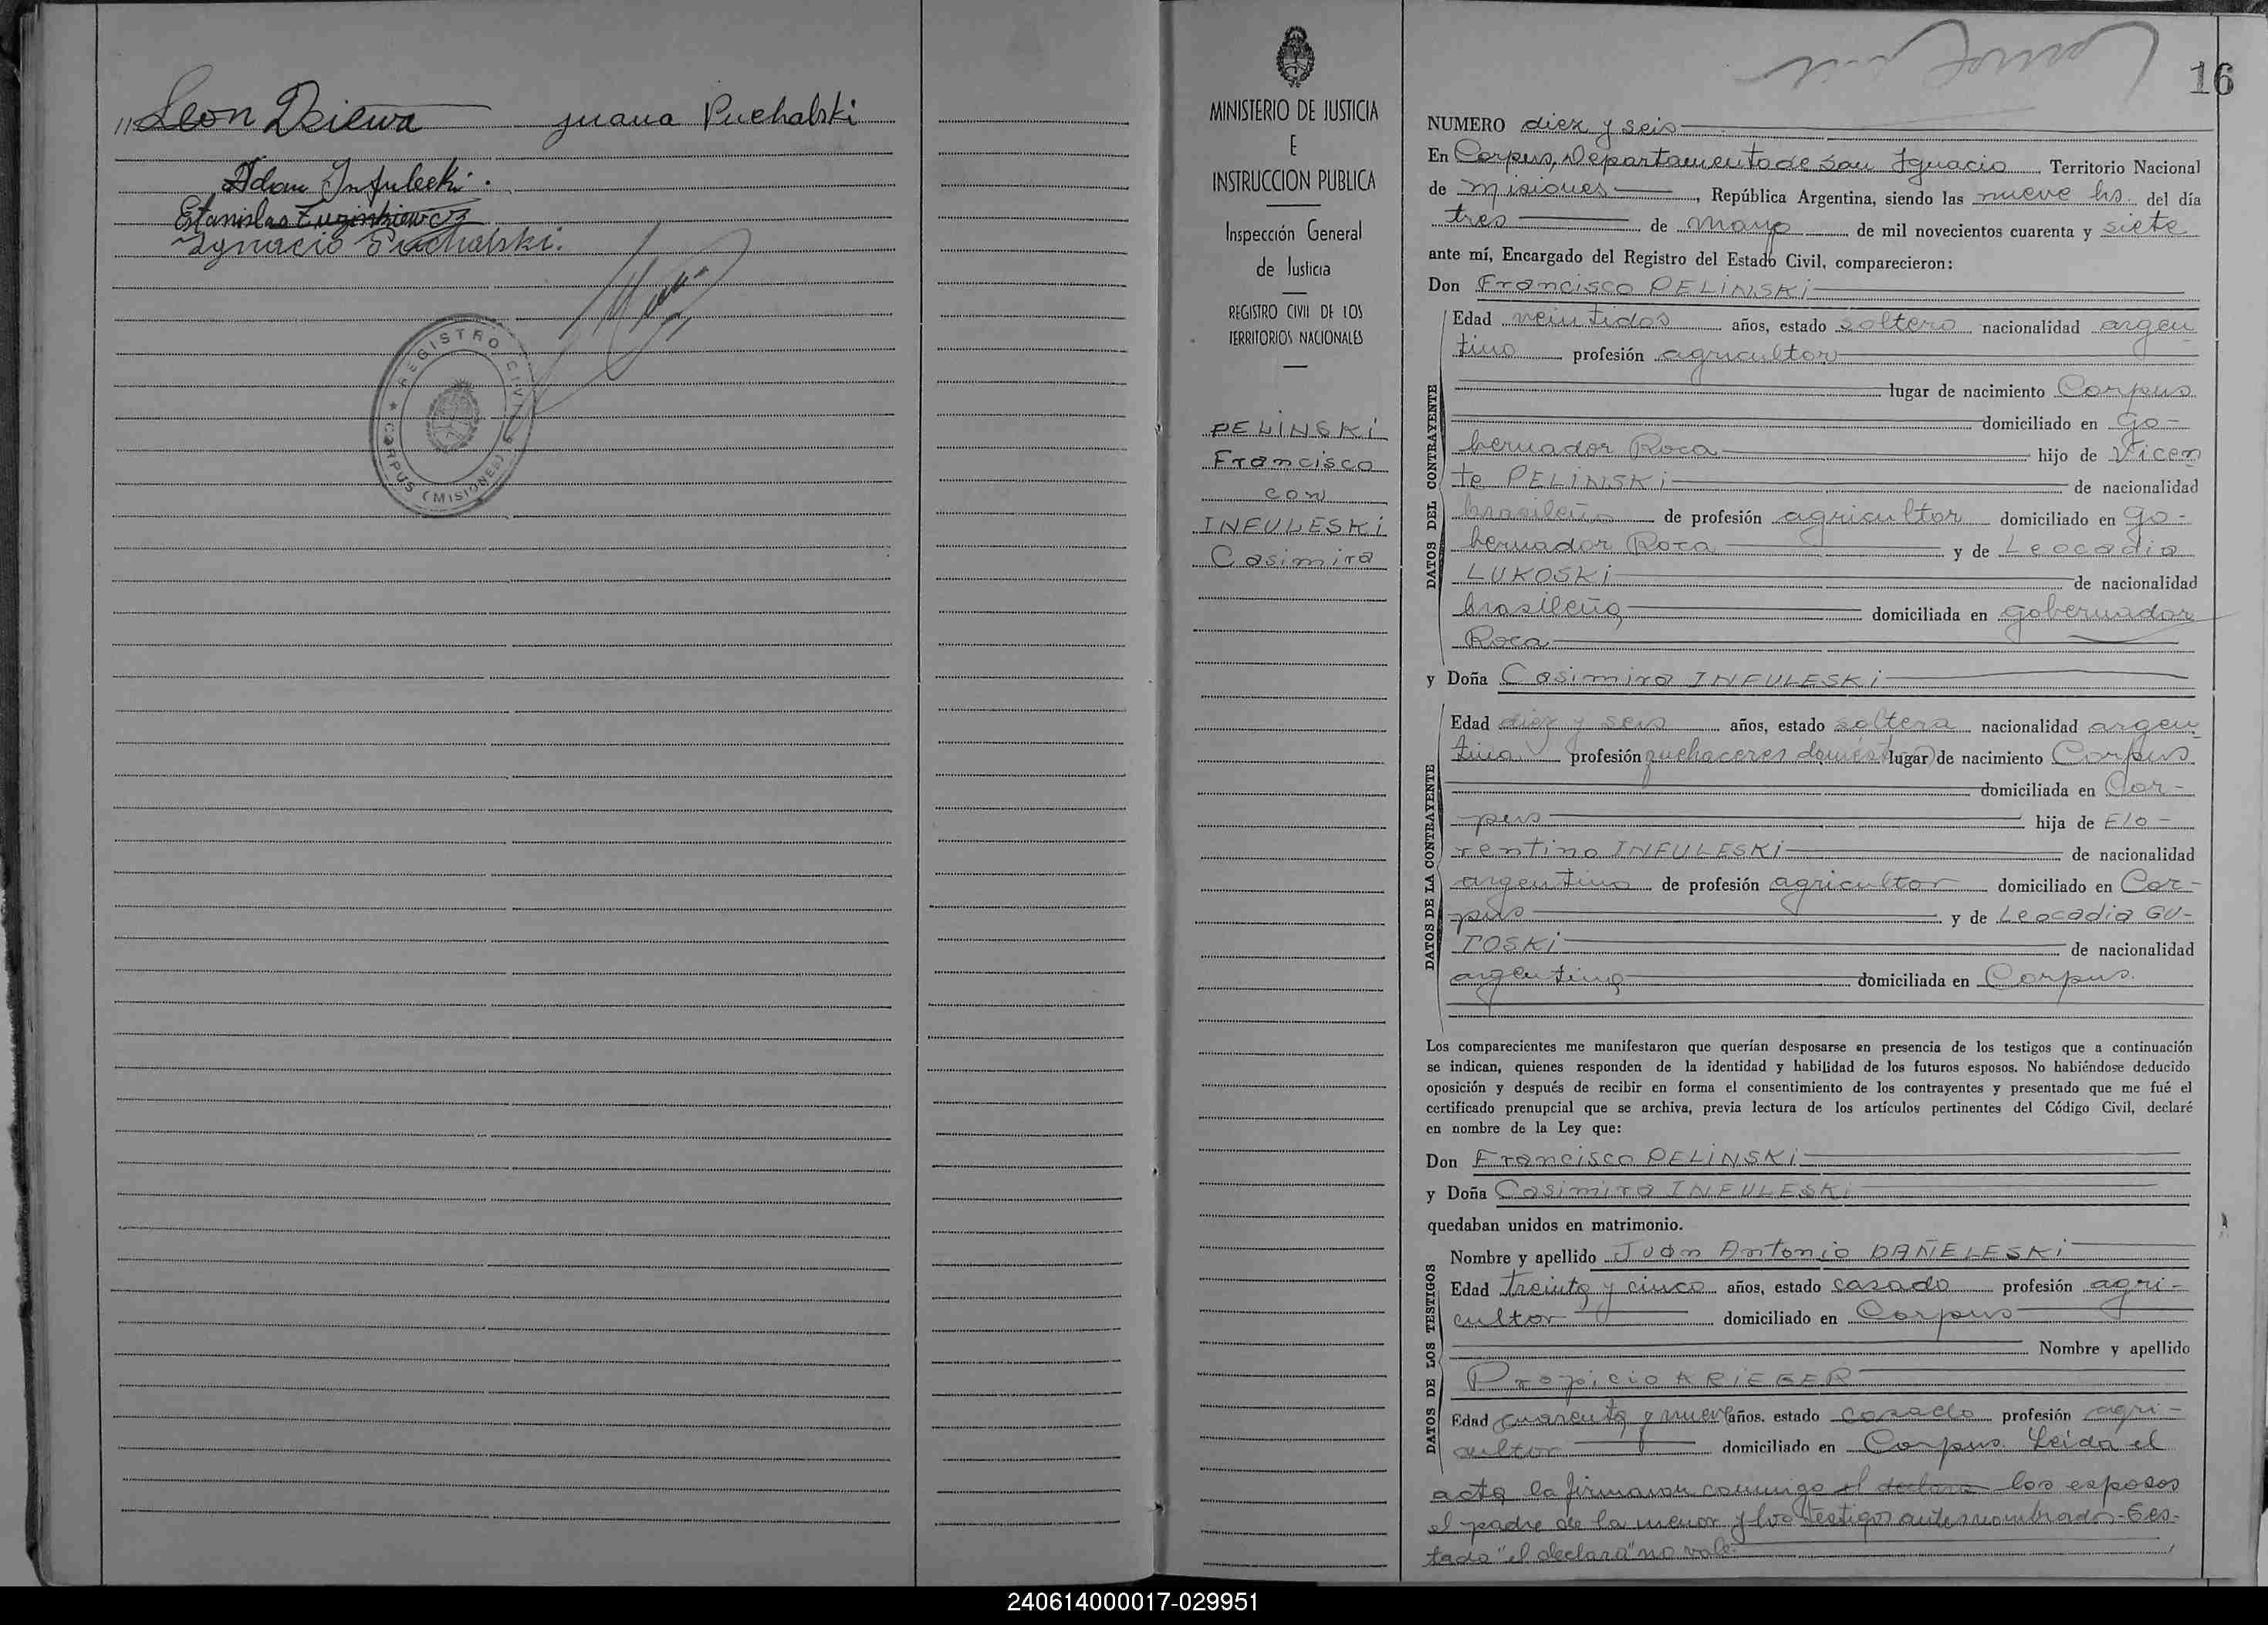 Leon Dziewa Juana Puchalski
Adan Infuleski.
Estanislao
Ygnacio Puchalski.
REGISTRO CIVIL
CORPUS (MISIONES)
MINISTERIO DE JUSTICIA
E
INSTRUCCION PUBLICA
Inspección General
de Justicia
REGISTRO CIVIL DE LOS
TERRITORIOS NACIONALES
PELINSKi
Francisco
con
INFULESKi
Casimira
16
NUMERO diez y seis
En Corpus, Departamento de San Ignacio Territorio Nacional
de Misiones, República Argentina, siendo las nueve hs. del día
tres de mayo de mil novecientos cuarenta y siete
ante mí, Encargado del Registro del Estado Civil, comparecieron:
Don Francisco PELINSKi
DATOS DEL CONTRAYENTE
Edad veintidos años, estado soltero nacionalidad argen
tino profesión agricultor
lugar de nacimiento Corpus
domiciliado en Go-
bernador Roca hijo de Vicen
te PELINSKi de nacionalidad
brasileño de profesión agricultor domiciliado en Go-
bernador Roca y de Leocadia
LUKOSKi de nacionalidad
brasileña domiciliada en Gobernador
Roca
y Doña Casimira INFULESKi
DATOS DE LA CONTRAYENTE
Edad diez y seis años, estado soltera nacionalidad argen
tina profesión quehaceres domésticos lugar de nacimiento Corpus
domiciliada en Cor-
pus hija de Flo-
rentino INFULESKi de nacionalidad
argentino de profesión agricultor domiciliado en Cor-
pus y de Leocadia GU-
TOSKi de nacionalidad
argentina domiciliada en Corpus.
Los comparecientes me manifestaron que querían desposarse en presencia de los testigos que a continuación
se indican, quienes responden de la identidad y habilidad de los futuros esposos. No habiéndose deducido
oposición y después de recibir en forma el consentimiento de los contrayentes y presentado que me fué el
certificado prenupcial que se archiva, previa lectura de los artículos pertinentes del Código Civil, declaré
en nombre de la Ley que:
Don Francisco PELINSKi
y Doña Casimira INFULESKi
quedaban unidos en matrimonio.
DATOS DE LOS TESTIGOS
Nombre y apellido Juan Antonio DAÑELESKi
Edad treinta y cinco años, estado casado profesión agri-
cultor domiciliado en Corpus
Nombre y apellido
Propicio KRIEGER
Edad cuarenta y nueve años, estado casado profesión agri-
cultor domiciliado en Corpus. Leida el
acta la firmaron conmigo el declara los esposos
el padre de la menor y los testigos antes nombrados-Ges-
tado "el declara" no vale
240614000017-029951